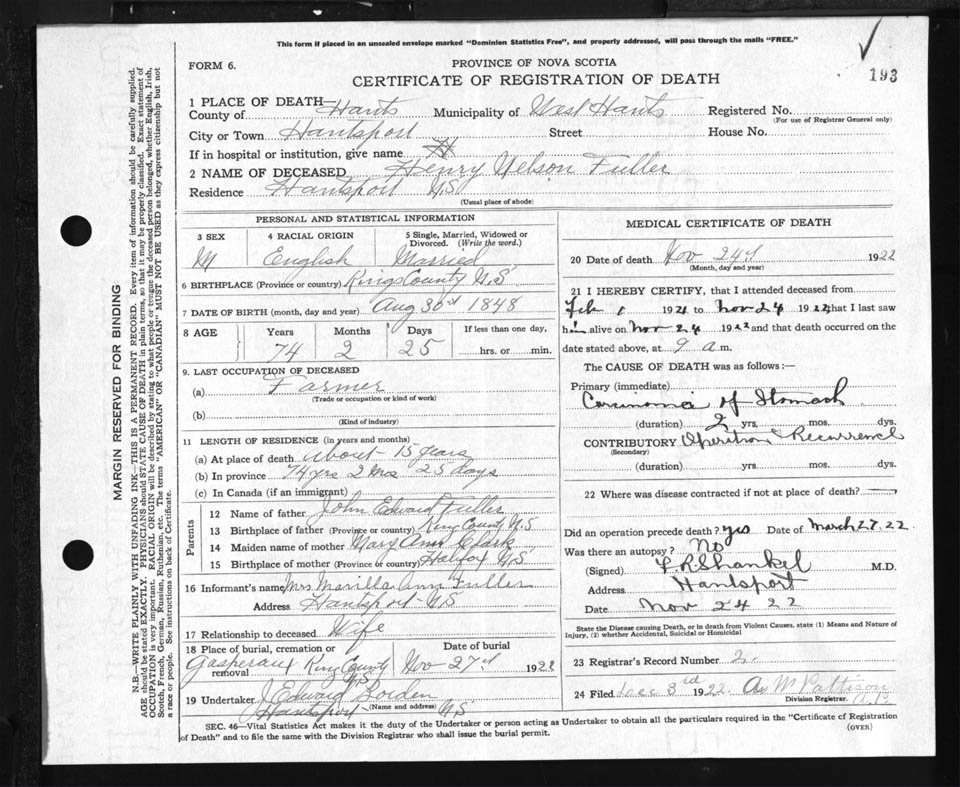 This form if placed in an unsealed envelope marked "Dominion Statistics Free", and properly addressed, will pass through the mails "FREE."
193
FORM 6.
PROVINCE OF NOVA SCOTIA
CERTIFICATE OF REGISTRATION OF DEATH
1 PLACE OF DEATH
County of Hants Municipality of West Hants Registered No.
(For use of Registrar General only)
City or Town Hantsport Street House No.
If in hospital or institution, give name
2 NAME OF DECEASED Henry Nelson Fuller
Residence Hantsport N.S
(Usual place of abode)
PERSONAL AND STATISTICAL INFORMATION
3 SEX 4 RACIAL ORIGIN 5 Single, Married, Widowed or Divorced. (Write the word.)
M English Married
6 BIRTHPLACE (Province or country) Kings County N.S
7 DATE OF BIRTH (month, day and year) Aug 30 1848
8 AGE Years Months Days If less than one day,
74 2 25 hrs. or min.
9. LAST OCCUPATION OF DECEASED
(a) Farmer
(Trade or occupation or kind of work)
(b)
(Kind of industry)
11 LENGTH OF RESIDENCE (in years and months)
(a) At place of death about 15 years
(b) In province 74 yrs 2 mos 25 days
(c) In Canada (if an immigrant)
Parents
12 Name of father John Edward Fuller
13 Birthplace of father (Province or country) King County N.S
14 Maiden name of mother Mary Ann Clark
15 Birthplace of mother (Province or country) Halifax N.S
16 Informant's name Mrs Marilla Ann Fuller
Address Hantsport N.S
17 Relationship to deceased Wife
18 Place of burial, cremation or removal Date of burial
Gasperaux King County N.S Nov 27 1922
19 Undertaker J Edward Borden
(Name and address)
Hantsport N.S
MEDICAL CERTIFICATE OF DEATH
20 Date of death Nov 24 1922
(Month, day and year)
21 I HEREBY CERTIFY, that I attended deceased from
Feb 1 1921 to Nov 24 1922 that I last saw
him alive on Nov 24 1922 and that death occurred on the
date stated above, at 9 a m.
The CAUSE OF DEATH was as follows:—
Primary (immediate)
Carcinoma of Stomach
(duration) 2 yrs. mos. dys.
CONTRIBUTORY Operation Recurrence
(Secondary)
(duration) yrs. mos. dys.
22 Where was disease contracted if not at place of death?
Did an operation precede death? yes Date of March 27. 22
Was there an autopsy? No
(Signed) F.R. Shankel M.D.
Address Hantsport
Date Nov 24 22
State the Disease causing Death, or in death from Violent Causes, state (1) Means and Nature of Injury, (2) whether Accidental, Suicidal or Homicidal
23 Registrar's Record Number
24 Filed Dec 3rd 1922 Pattison
Division Registrar.
SEC. 46—Vital Statistics Act makes it the duty of the Undertaker or person acting as Undertaker to obtain all the particulars required in the "Certificate of Registration
of Death" and to file the same with the Division Registrar who shall issue the burial permit.
(OVER)
MARGIN RESERVED FOR BINDING
N.B.—WRITE PLAINLY WITH UNFADING INK—THIS IS A PERMANENT RECORD. Every item of information should be carefully supplied.
AGE should be stated EXACTLY. PHYSICIANS should STATE CAUSE OF DEATH in plain terms, so that it may be properly classified. Exact statement of
OCCUPATION is very important. RACIAL ORIGIN will be described by stating to what people or tongue the deceased person belonged, whether English, Irish,
Scotch, French, German, Russian, Ruthenian, etc. The terms "AMERICAN" OR "CANADIAN" MUST NOT BE USED as they express citizenship but not
a race or people. See instructions on back of Certificate.